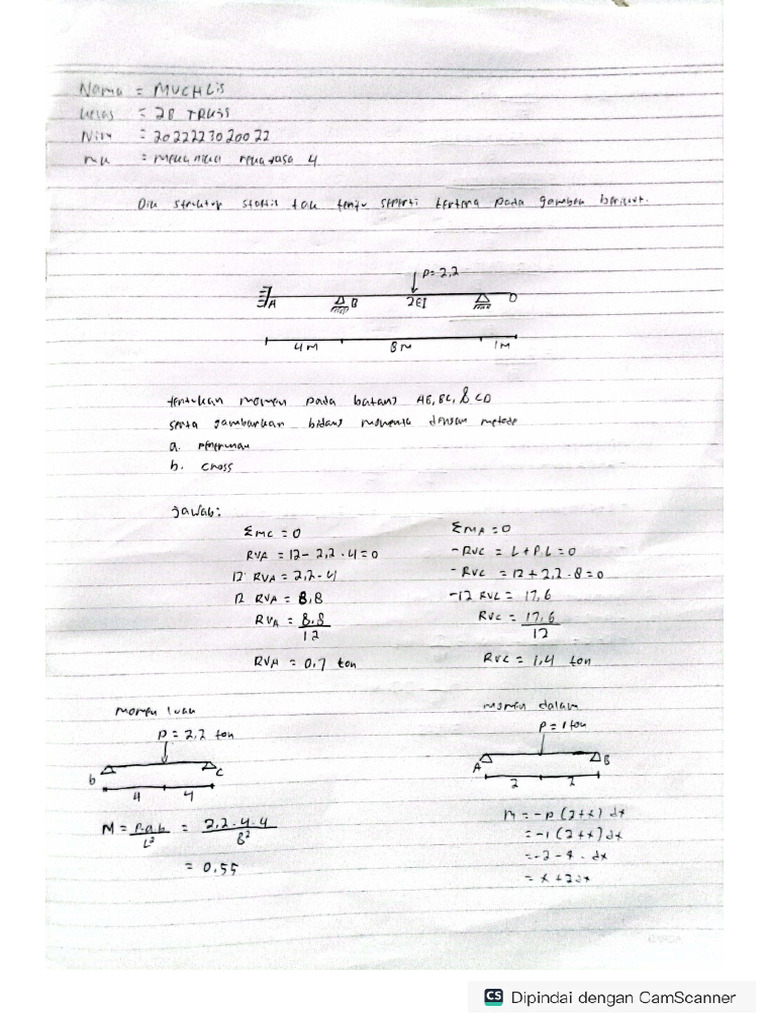 Nama = MUCHLIS
Kelas = 2B TRKJJ
Nim = 2022223020022
mk = mekanika rekayasa 4
Dik struktur statis tak tentu seperti tertera pada gambar berikut.
P= 2,2
A B 2EI D
4M 8M 1M
tentukan momen pada batang AB, BC, & CD
serta gambarkan bidang momennya dengan metode
a.
b. cross
Jawab:
ΣMC = 0 ΣMA = 0
RVA = 12 - 2,2 . 4 = 0 - RVC = L + P.L = 0
12 RVA = 2,2 . 4 - RVC = 12 + 2,2 . 8 = 0
12 RVA = 8,8 -12 RVC = 17,6
RVA = 8.8 RVC = 17,6
12 12
RVA = 0,7 ton RVC = 1,4 ton
momen luar momen dalam
P = 2,2 ton P = 1 ton
b C A B
4 4 2 2
M = P.a.b = 2,2 . 4 . 4 M = -P (2+x) dx
L² 8² = -1 (2+x) dx
= 0,55 = -2 - 4 . dx
= x + 2 dx
CS Dipindai dengan CamScanner